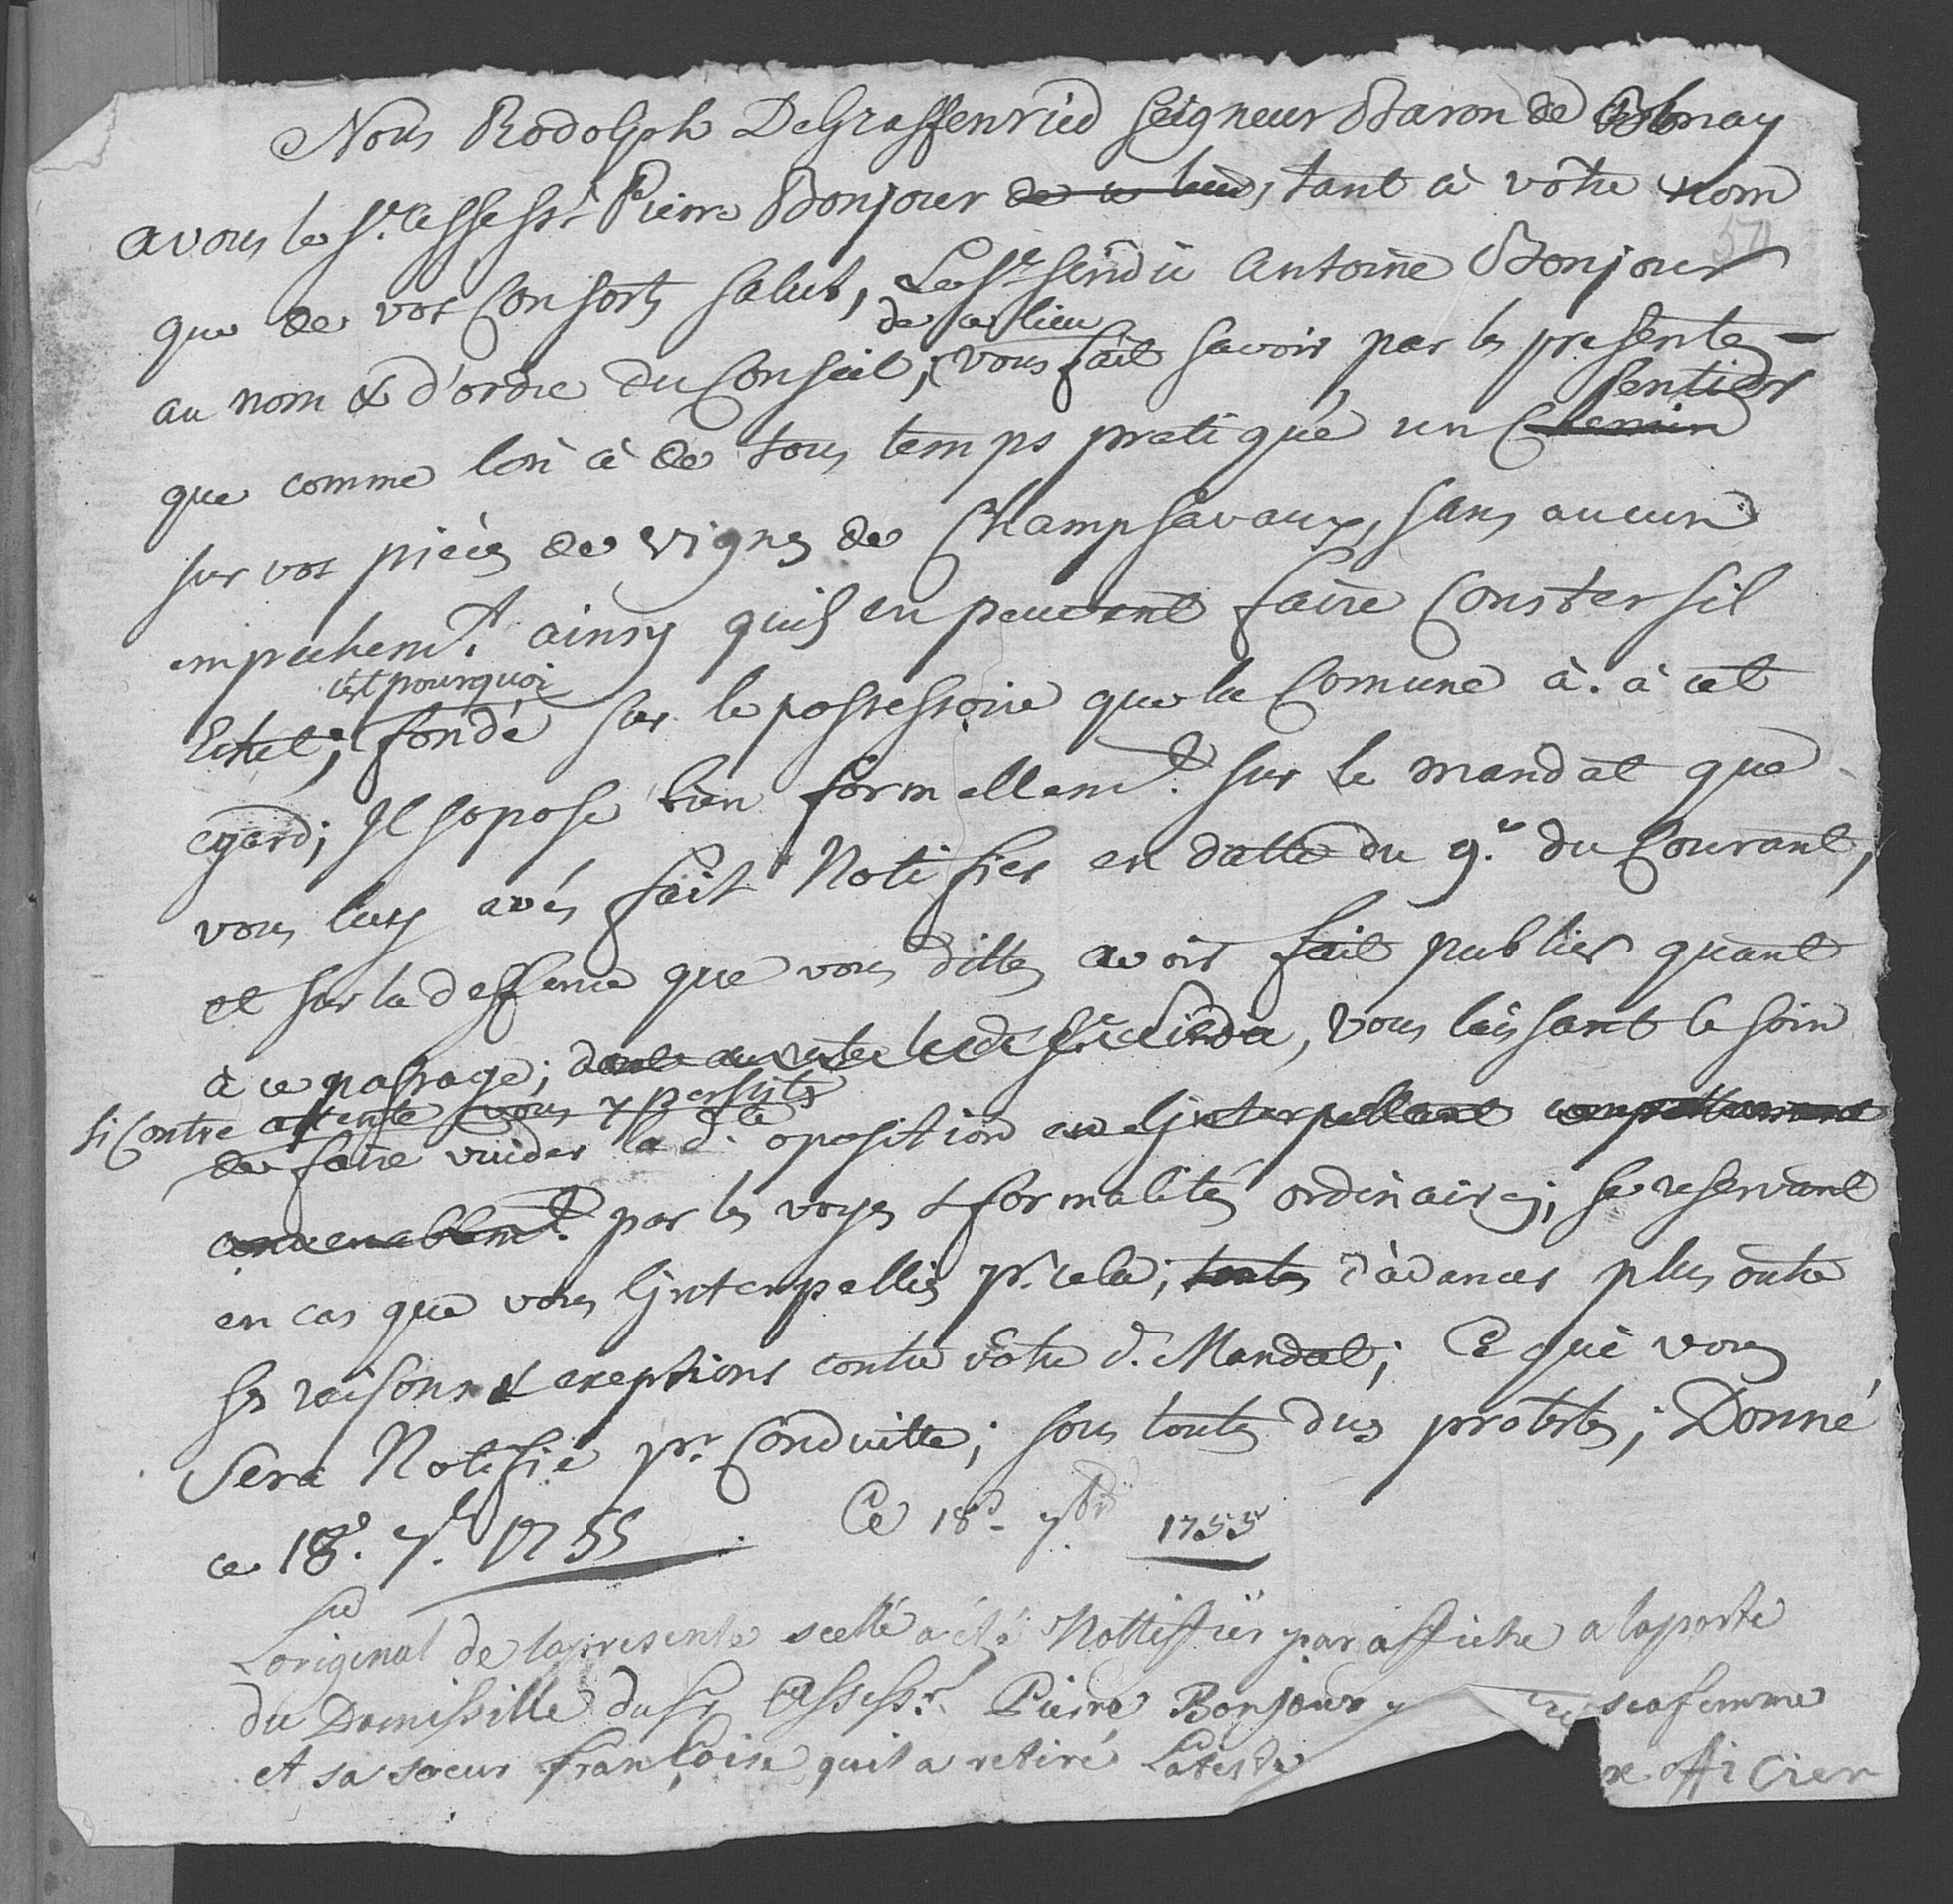 Nous Rodolph DeGraffenried Seigneur Baron de Blonay
a vous le Sr. Assessr. Pierre Bonjour de ce lieu, tant à vôtre nom
que de vos Consorts salut, Le Sr. sindiq Antoine Bonjour
de ce lieu
au nom & d'ordre du Conseil, vous fait savoir par les presentes
sentier
que comme lon à de tous temps pratiqué un Chemin
sur vos pièces de vignes de Champsavaux, sans aucun
empechemt. ainsy quils en peuvent faire Conster sil
c'est pourquoi
Echet; fondé sur le possessoire que la Comune à. à cet
egard; Il sopose bien formellemt. sur le mandat que
vous luy avés fait Notifier en datte du 9e. du Courant,
et sur la deffence que vous dittes avoir fait publier quant
à ce passage; vous laissant le soin
si Contre attente vous y persisté
de faire vuider la de. oposition en l'interpellant
convenablemt. par les voyes & formalités ordinaires; se reservant
en cas que vous l'interpelliés pr. cela; toutes d'àdancer plus outre
ses raisons & exeptions contre vôtre d. Mandat; Ce qui vous
sera Notifié pr. Conduitte; sous toutes dues protestes; Donné
ce 18e. 7.bre 1755 Ce 18e. 7br 1755
Loriginal de lapresente scellé a été Nottiffiër par affiche a laporte
du Domissille du Sr Assessr. Pierre Bonjour sa femme
et sa soeur Françoise quil a retiré Lateste officier